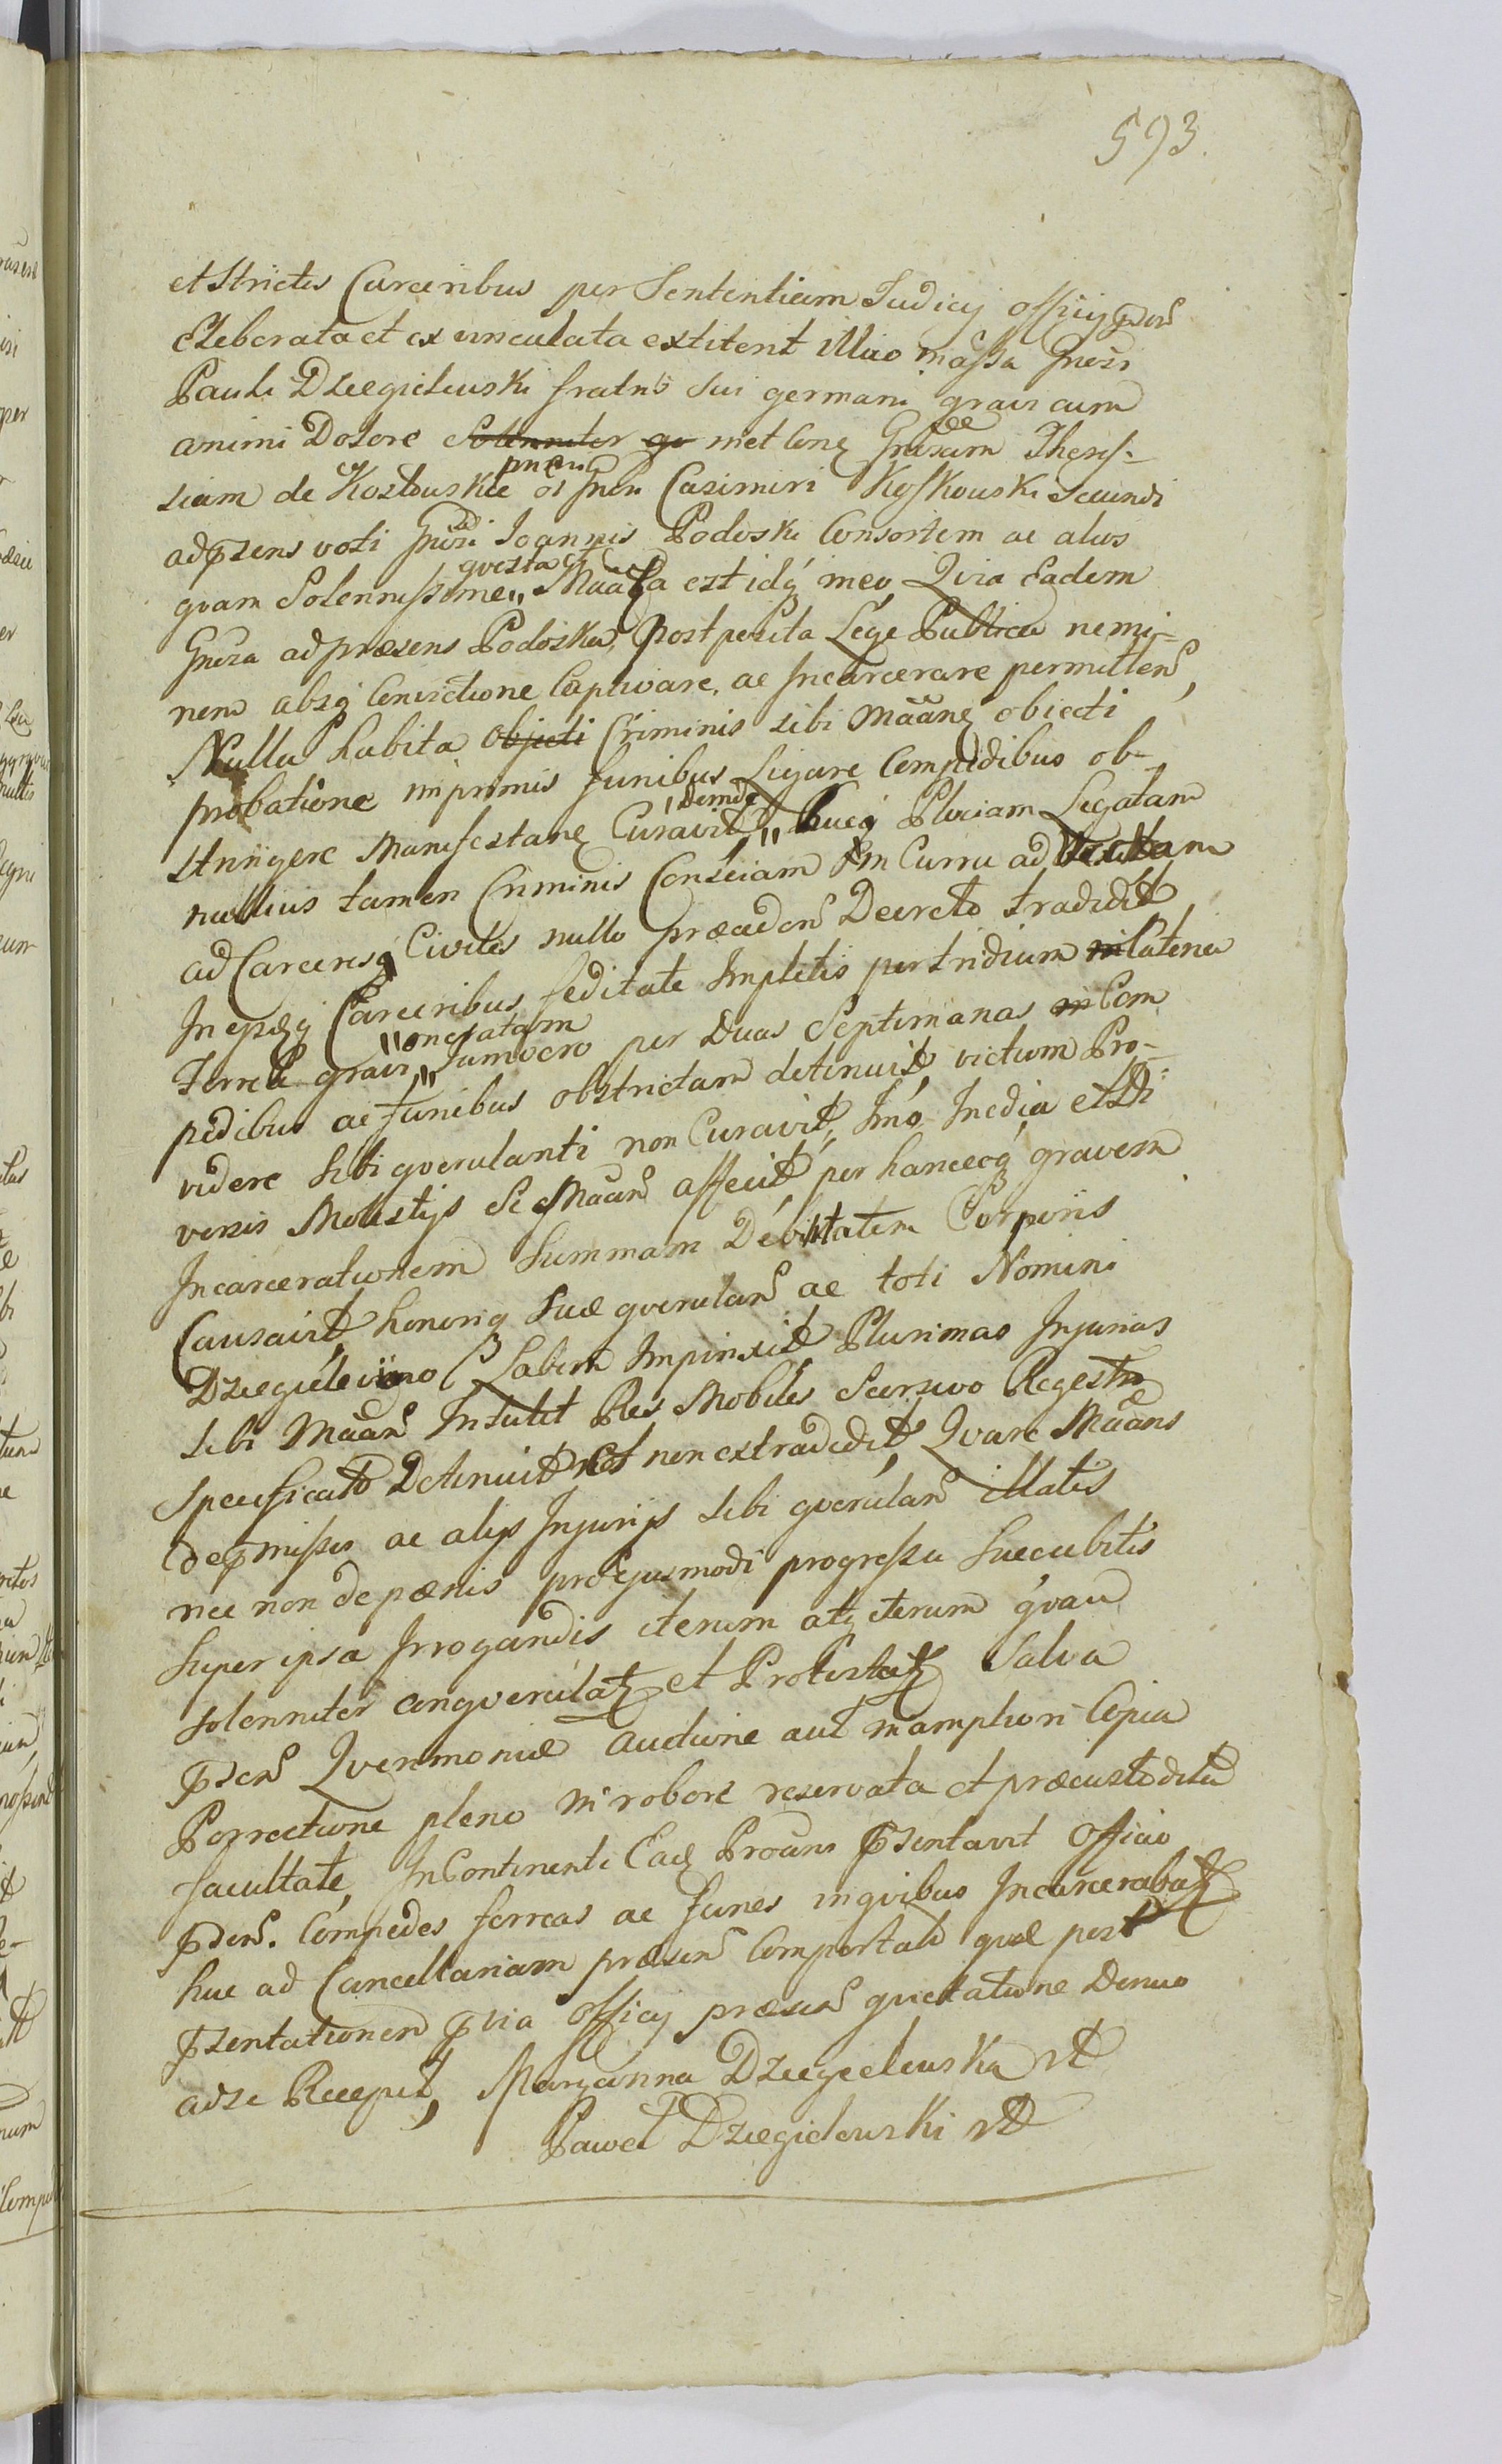 593.
et Strictis Carceribus per Sententiam Judicij officij pñs
Eleberata et ex vinculata extiterit illico massa Gnosi
Pauli Dzięgielewski fratris sui germani gravi cum
animi Dolore Solenniter met Conq Gñosam Theres=
siam de Kozłowskie primi Casimiri Koskowski secundi
ad pñsens voti Gñosi Joannis Podoski Consortem ac alios
quam Solennissime questa et Maãta est idq́ ineo Qvia Eadem
Gnosa ad præsens Podoska, Postposita Lege Publica nemi=
nem absq Convictione Captivare, ac Incarcerare permitten,
Nulla habita objecti Criminis sibi Maanẽ obiecti
probatione imprimis funibus Ligare Compedibus ob=
stringere Manifestanẽ Curavit, deinde hucq Plociam Legatam
nullius tamen Criminis Consciam in Curru ad
ad Carceresq́ Civiles nullo præceden Decreto tradidit
In Carceribus feditate Impletis per triduum Catena
Ferrea gravi oneratam Jamvero per Duas Septimanas Com
pedibus ac Funibus obstrictam detinuit, victum Pro=
videre sibi querulanti non Curavit, Imo Inedia et Di=
versis Molestijs Se Maan affecit per hancceq́ gravem
Incarcerationem Summam Debilitatem Corporis
Causavit, honoriq Suæ querulan ac toti Nomini
Labem Impinxit, Plurimas Injurias
sibi Maan Intulit Res Mobiles Seorsivo Regestro
Specificato Detinuit et non extradidit, Qvare Maans
de pmissis ac alijs Injurijs sibi querulan illatis
nec non de pœnis pro Ejusmodi progressu Succubitis
Super ipsa Irrogandis iterum atq iterum qvam
solenniter conquerulat et Protestat Salva
pñsen Qverimoniæ auctione aut inampliori Copia
Porrectione pleno in robore reservata et præcustodita
facultate, In Continenti Eadẽ Proans pñsentavit Officio
pñsen. Compedes ferreas ac funes in quibus Incarcerabat
huc ad Cancellariam præsen Comportat quæ post
pñsentationem pvia Officij præsen quietatione Denuo
ad se Recepit, Maryanna Dzięgielewska
Paweł Dzięgielewski